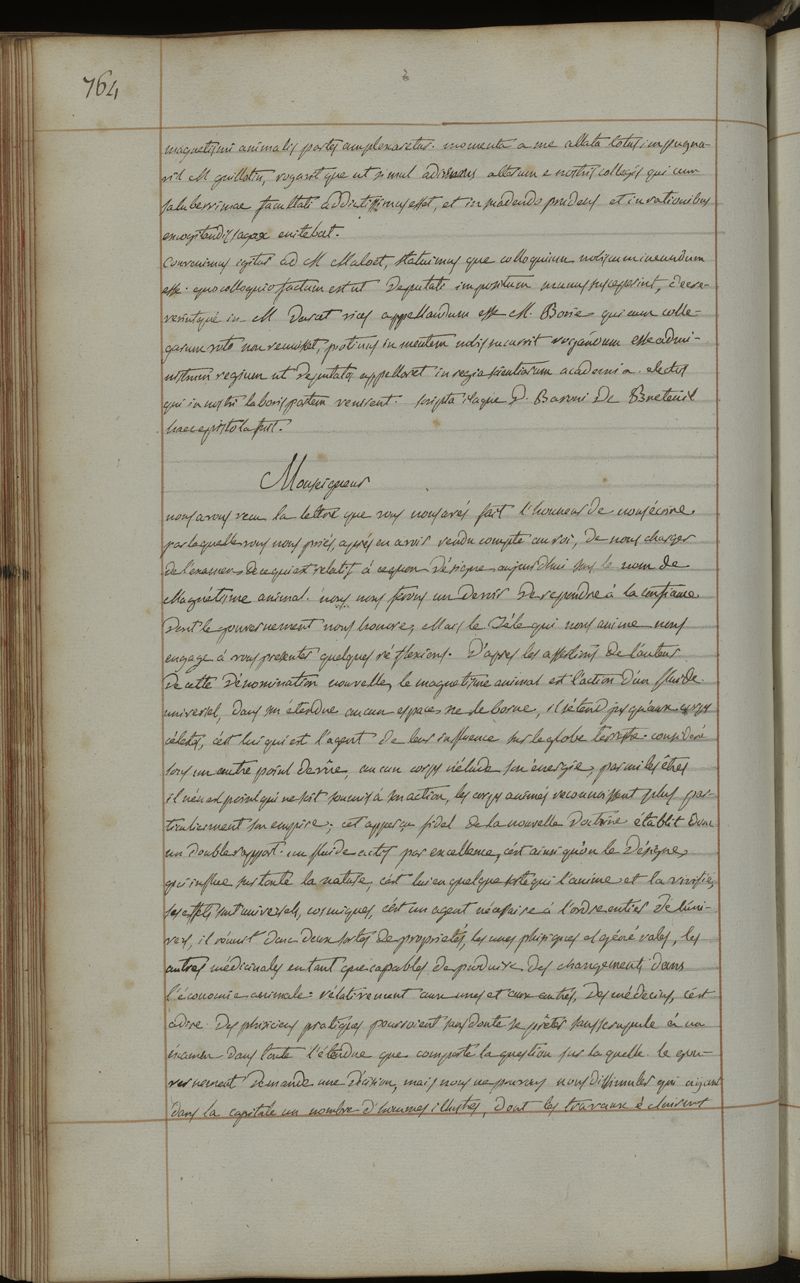 764
magnetismi animalis partes amplexaretur. momenta a me allata totus impugna-
vit M guillotin, rogavit que ut simul adiremus alterum e nostris collegis qui cum
saluberrimae facultati addictissimus esset, et in suadendo prudens et in rationibus
excogitandis sagax enitebat.
Convenimus igitur ad M Maloet, statuimus que colloquium nobiscum ineundum
esse. quo colloquio factum est ut Deputati impositum munus susceperint, decre-
verintque in M Darcet vices appellandum esse M. Borie qui cum colle-
garum voto non renuisset, protinus in mentem nobis incurrit rogandum esse admi-
nistrum regium ut deputatos appellaret in regia scientiarum academia electos
qui in nostri laboris partem venirent. scripta itaque D. Baroni De Breteuil
haec epistola fuit.
Monseigneur
nous avons reçu la lettre que vous nous avés fait l'honneur de nous écrire,
par laquelle vous nous priés, après en avoir rendu compte au roi, de nous charger
de l'examen de ce qui est relatif à ce qu'on désigne aujourdhui sous le nom de
Magnétisme animal. nous nous ferons un devoir De repondre à la confiance
Dont le gouvernement nous honore, Mais le Zéle qui nous anime nous
engage á vous presenter quelques réflexions. D'apres les assertions de l'auteur
De cette Dénomination nouvelle, le magnetisme animal est l'action d'un fluide
universel, dans son étendue aucun espace ne le borne, il s'étend jusqu'aux corps
célestes, c'est lui qui est l'agent de leur influence sur le globe terrestre. considéré
sous un autre point de vûe, aucun corps n'élude son énergie, parmi les êtres
il n'en est point qui ne soit soumis á son action, les corps animés reconnaissent plus par-
ticulierement son empire; cet apperçu fidel de la nouvelle Doctrine établit donc
un double rapport. un fluide actif par excellence, c'est ainsi qu'on le Désigne,
qui influe sur toute la nature, c'est lui en quelque sorte qui l'anime et la vivifie,
ses effets sont universels, cosmiques, c'est un agent nécessaire à l'ordre entier de l'uni-
vers, il réunit donc deux sortes de proprietés, les unes phisiques et générales, les
autres médicinales en tant que capables de produire des changements dans
l'économie animale. rélativement aux unes et aux autres, Des médecins, c'est
adire Des phisiciens pratiques pourroient sans doute se prêter sans scrupule á un
éxamen dans toute l'étendue que comporte la question sur laquelle le gou-
vernement Demande une Décision, mais nous ne pouvons nous dissimuler qui ayant
dans la capitale un nombre d'hommes illustres, dont les travaux éclairent